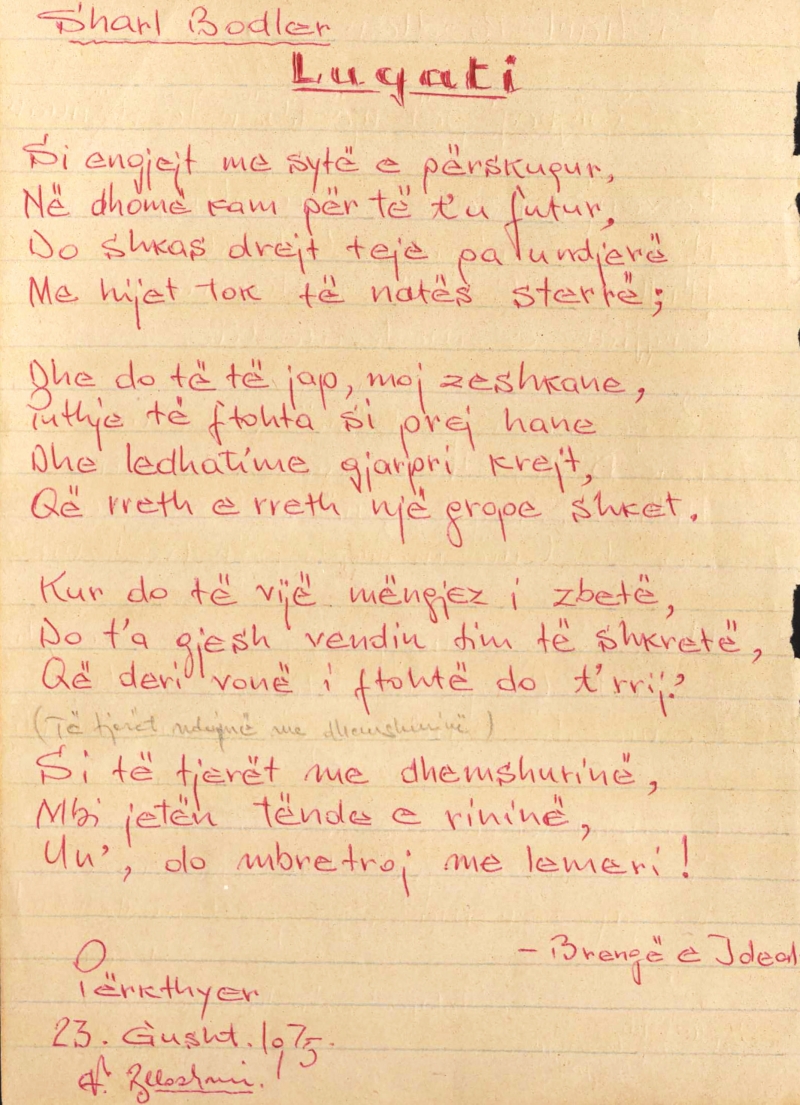 Sharl Bodler
Lugati
Si engjejt me sytë e përskuqur,
Në dhomë kam për të t'u futur,
Do shkas drejt teje pa undjerë
Me hijet tok të natës sterrë;
Dhe do të të jap, moj zeshkane,
Puthje të ftohta si prej hane
Dhe ledhatime gjarpri krejt,
Që rreth e rreth një grope shket.
Kur do të vijë mëngjez i zbetë,
Do t'a gjesh vendin tim të shkretë,
Që deri vonë i ftohtë do t'rrij?
(Të tjerët ndujnë me dhemshurinë)
Si të tjerët me dhemshurinë,
Mbi jetën tënde e rininë,
Un', do mbretroj me lemeri!
– Brengë e Ideal
Përkthyer
23. Gusht. 1975.